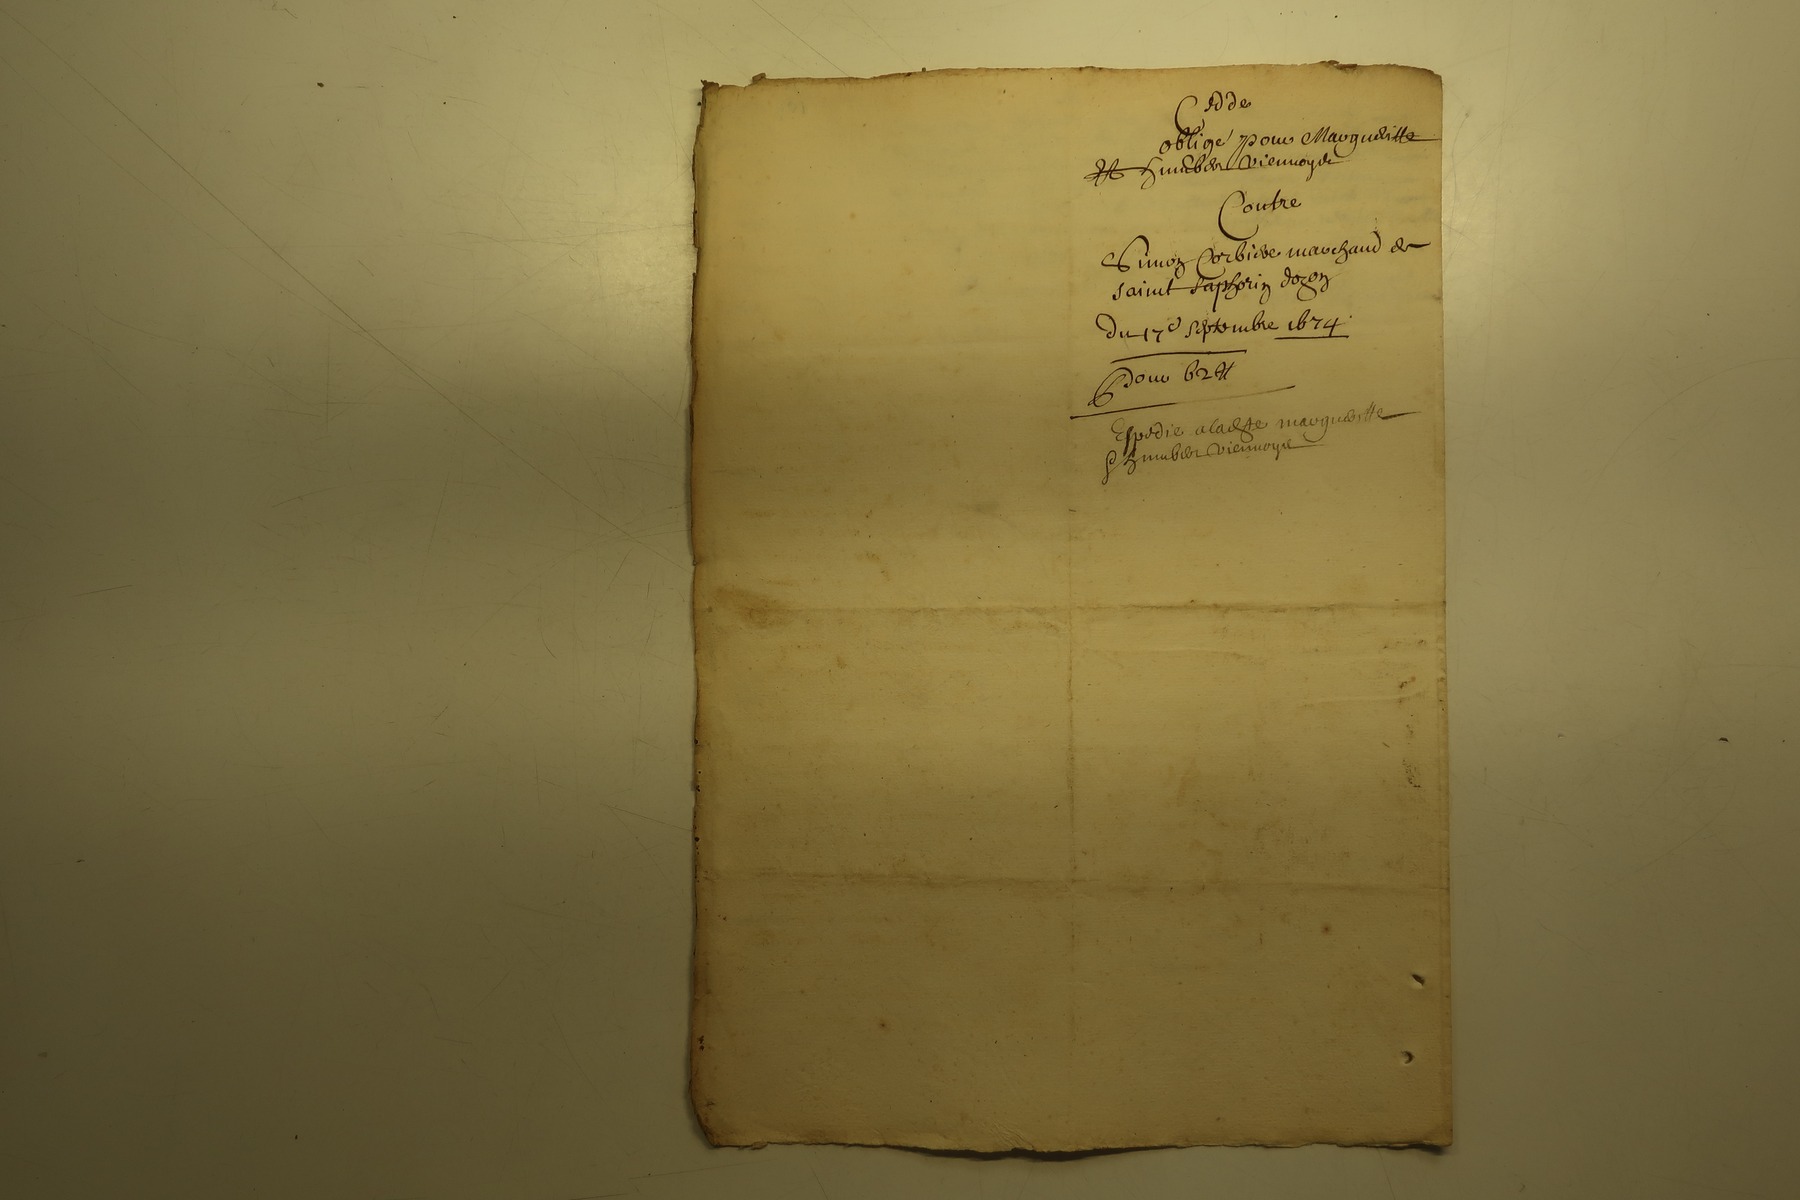 Cedde
oblige pour Margueritte
et humbder viennoyde
Contre
Simon Corbiere marchand de
saint saphorin dozon
du 17e septembre 1674
pour 62 tt
Expedie a ladite margueritte
humbder viennoyse